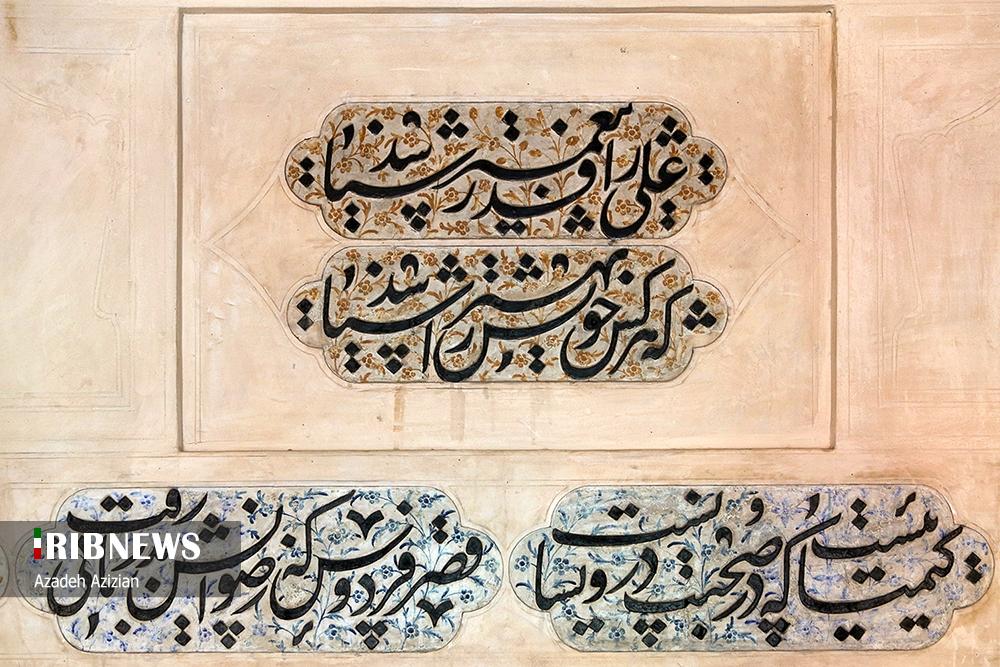 علی را قدر پیغمبر شناسد
که هر کس خویش را بهتر شناسد
کیمیائیست که در صحبت درویشانست
قصر فردوس که رضوانش بدربانی رفت
IRIBNEWS
Azadeh Azizian